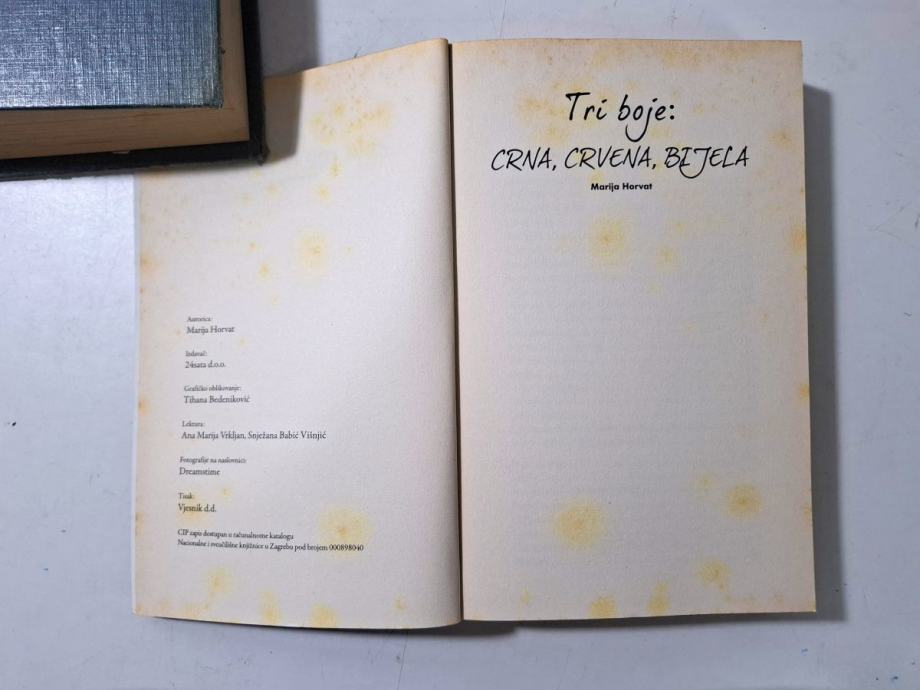 Autorica:
Marija Horvat
Izdavač:
24sata d.o.o.
Grafičko oblikovanje:
Tihana Bedeniković
Lektura:
Ana Marija Vrkljan, Snježana Babić Višnjić
Fotografije na naslovnici:
Dreamstime
Tisak:
Vjesnik d.d.
CIP zapis dostupan u računalnome katalogu
Nacionalne i sveučilišne knjižnice u Zagrebu pod brojem 000898040
Tri boje:
CRNA, CRVENA, BIJELA
Marija Horvat